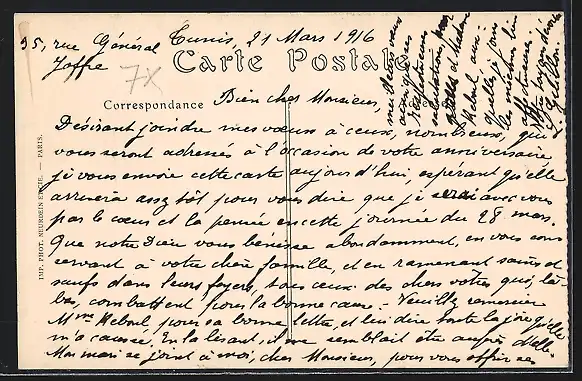 35, rue Général Tunis, 21 Mars 1916
Joffre
Carte Postale
Correspondance Bien cher Monsieur,
Désirant joindre mes vœux à ceux, nombreux, qui
vous seront adressés à l'occasion de votre anniversaire,
je vous envoie cette carte aujourd'hui, espérant qu'elle
arrivera assez tôt pour vous dire que je serai avec vous
par le cœur et la pensée en cette journée du 28 mars.
Que notre Dieu vous bénisse abondamment, en vous con
servant à votre chère famille, et en ramenant sains et
saufs dans leurs foyers, tous ceux des chers vôtres qui, là-
bas, combattent pour la bonne cause. - Veuillez remercier
Mme Reboul, pour sa bonne lettre, et lui dire toute la joie qu'elle
m'a causée. En la lisant, il me semblait être auprès d'elle.
Mon mari se joint à moi, cher Monsieur, pour vous offrir ses
meilleurs vœux
ainsi que ses
respectueuses
salutations, pour
Reboul aux
quelles je joins
IMP. PHOT. NEURDEIN ET CIE. — PARIS.
7X